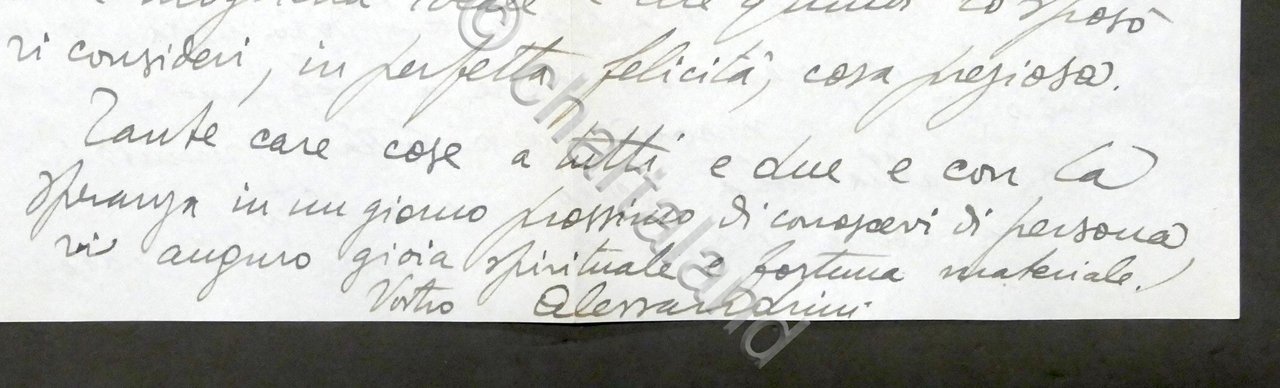 sposò
si consideri, in perfetta felicità, cosa preziosa.
Tante care cose a tutti e due e con la
speranza in un giorno prossimo di conoscervi di persona
vi auguro gioia spirituale e fortuna materiale.
Vostro Alessandrini
© chartaland